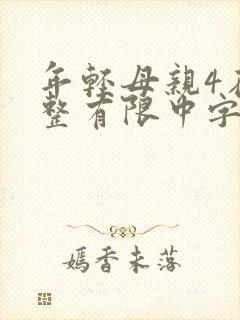 年轻母親4在
整有限中字
嫣香未落